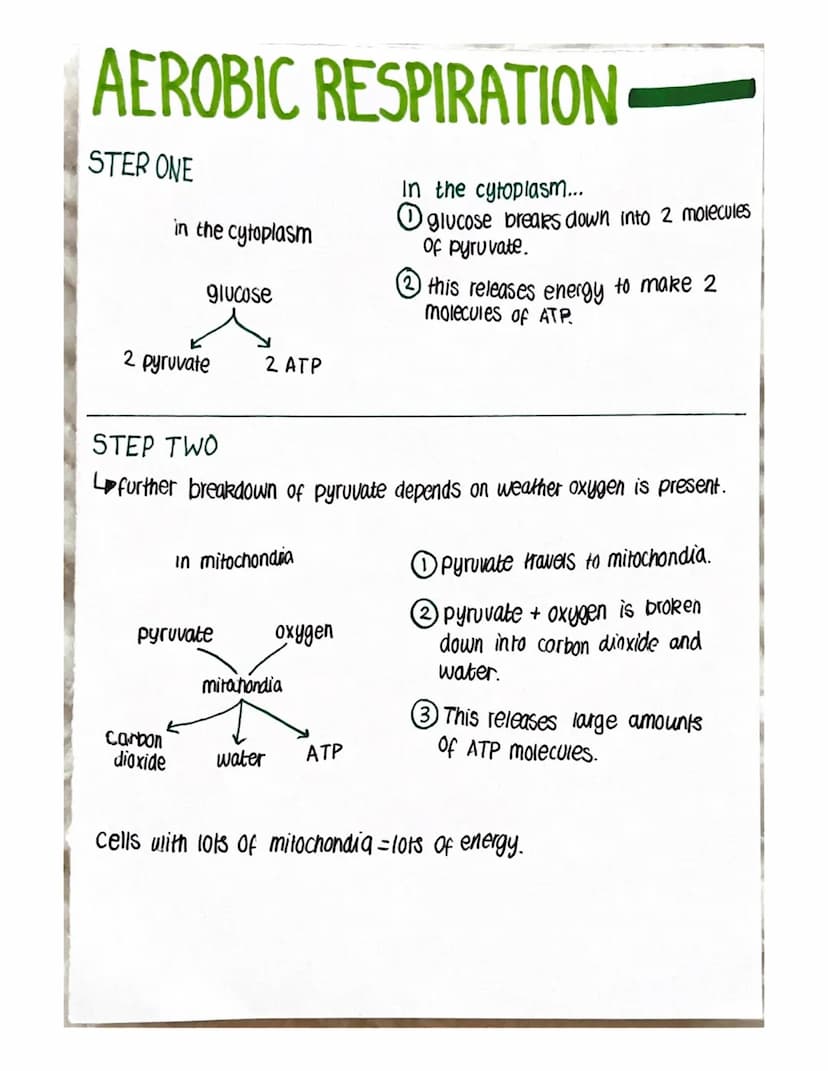 AEROBIC RESPIRATION
STEP ONE
in the cytoplasm
glucose
2 pyruvate 2 ATP
In the cytoplasm...
① glucose breaks down into 2 molecules
of pyruvate.
② this releases energy to make 2
molecules of ATP.
STEP TWO
↳ further breakdown of pyruvate depends on weather oxygen is present.
in mitochondia
pyruvate oxygen
mitohondia
Carbon
dioxide water ATP
① pyruvate travels to mitochondia.
② pyruvate + oxygen is broken
down into carbon dioxide and
water.
③ This releases large amounts
of ATP molecules.
cells with lots of mitochondia = lots of energy.